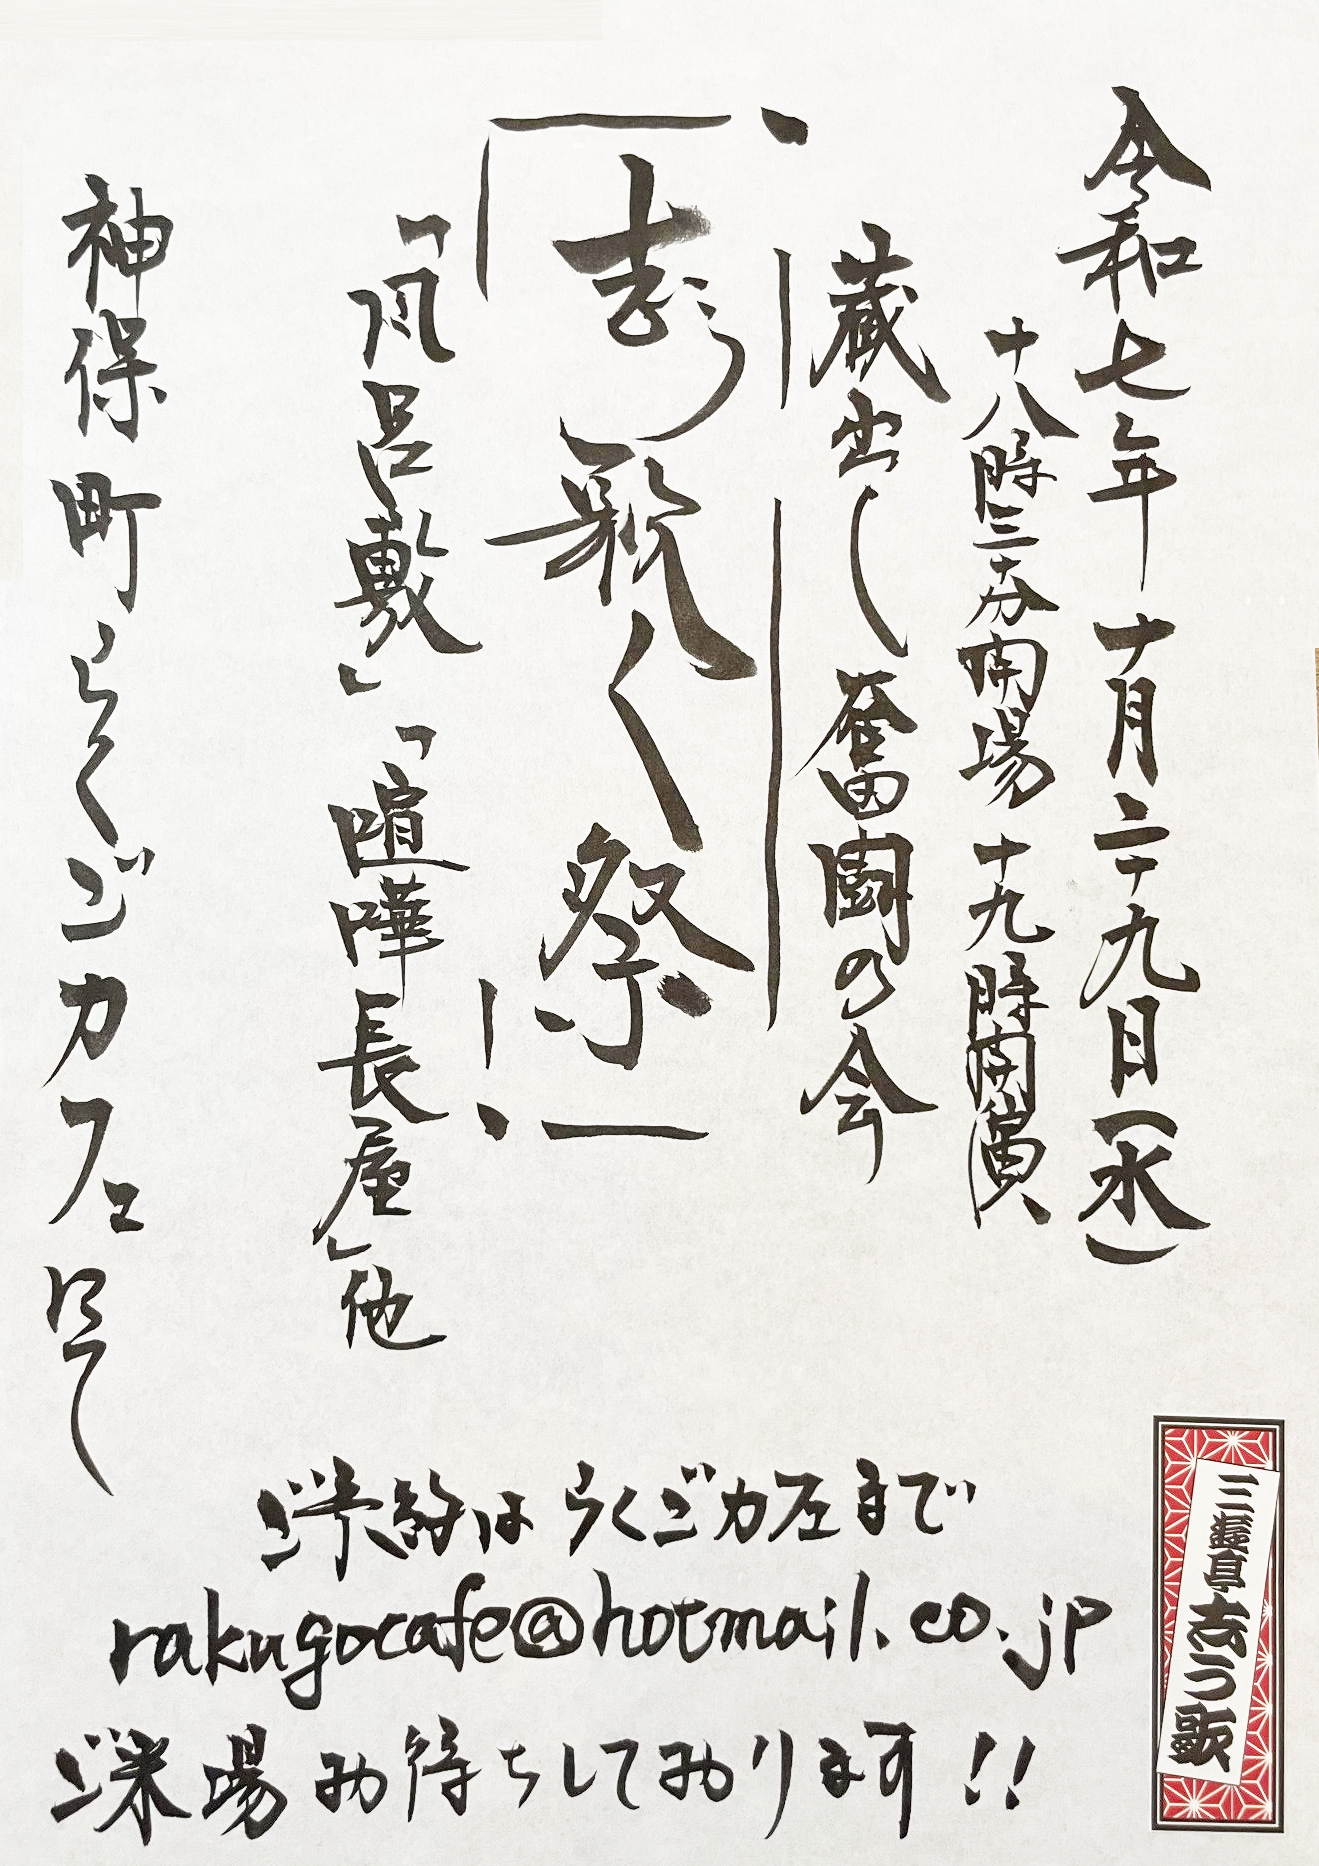 令和七年十月二十九日(水)
十八時三十分開場 十九時開演
蔵出し奮闘の会
志う歌く祭
「風呂敷」「喧嘩長屋」他
神保町らくごカフェにて
ご予約はらくごカフェまで
rakugocafe@hotmail.co.jp
ご来場お待ちしております!!
三遊亭志う歌